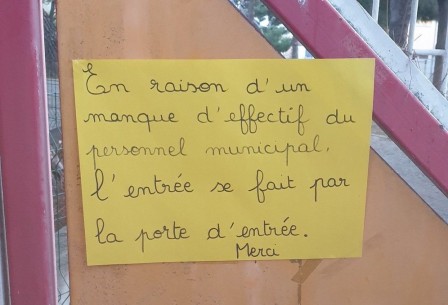 En raison d'un
manque d'effectif du
personnel municipal,
l'entrée se fait par
la porte d'entrée.
Merci